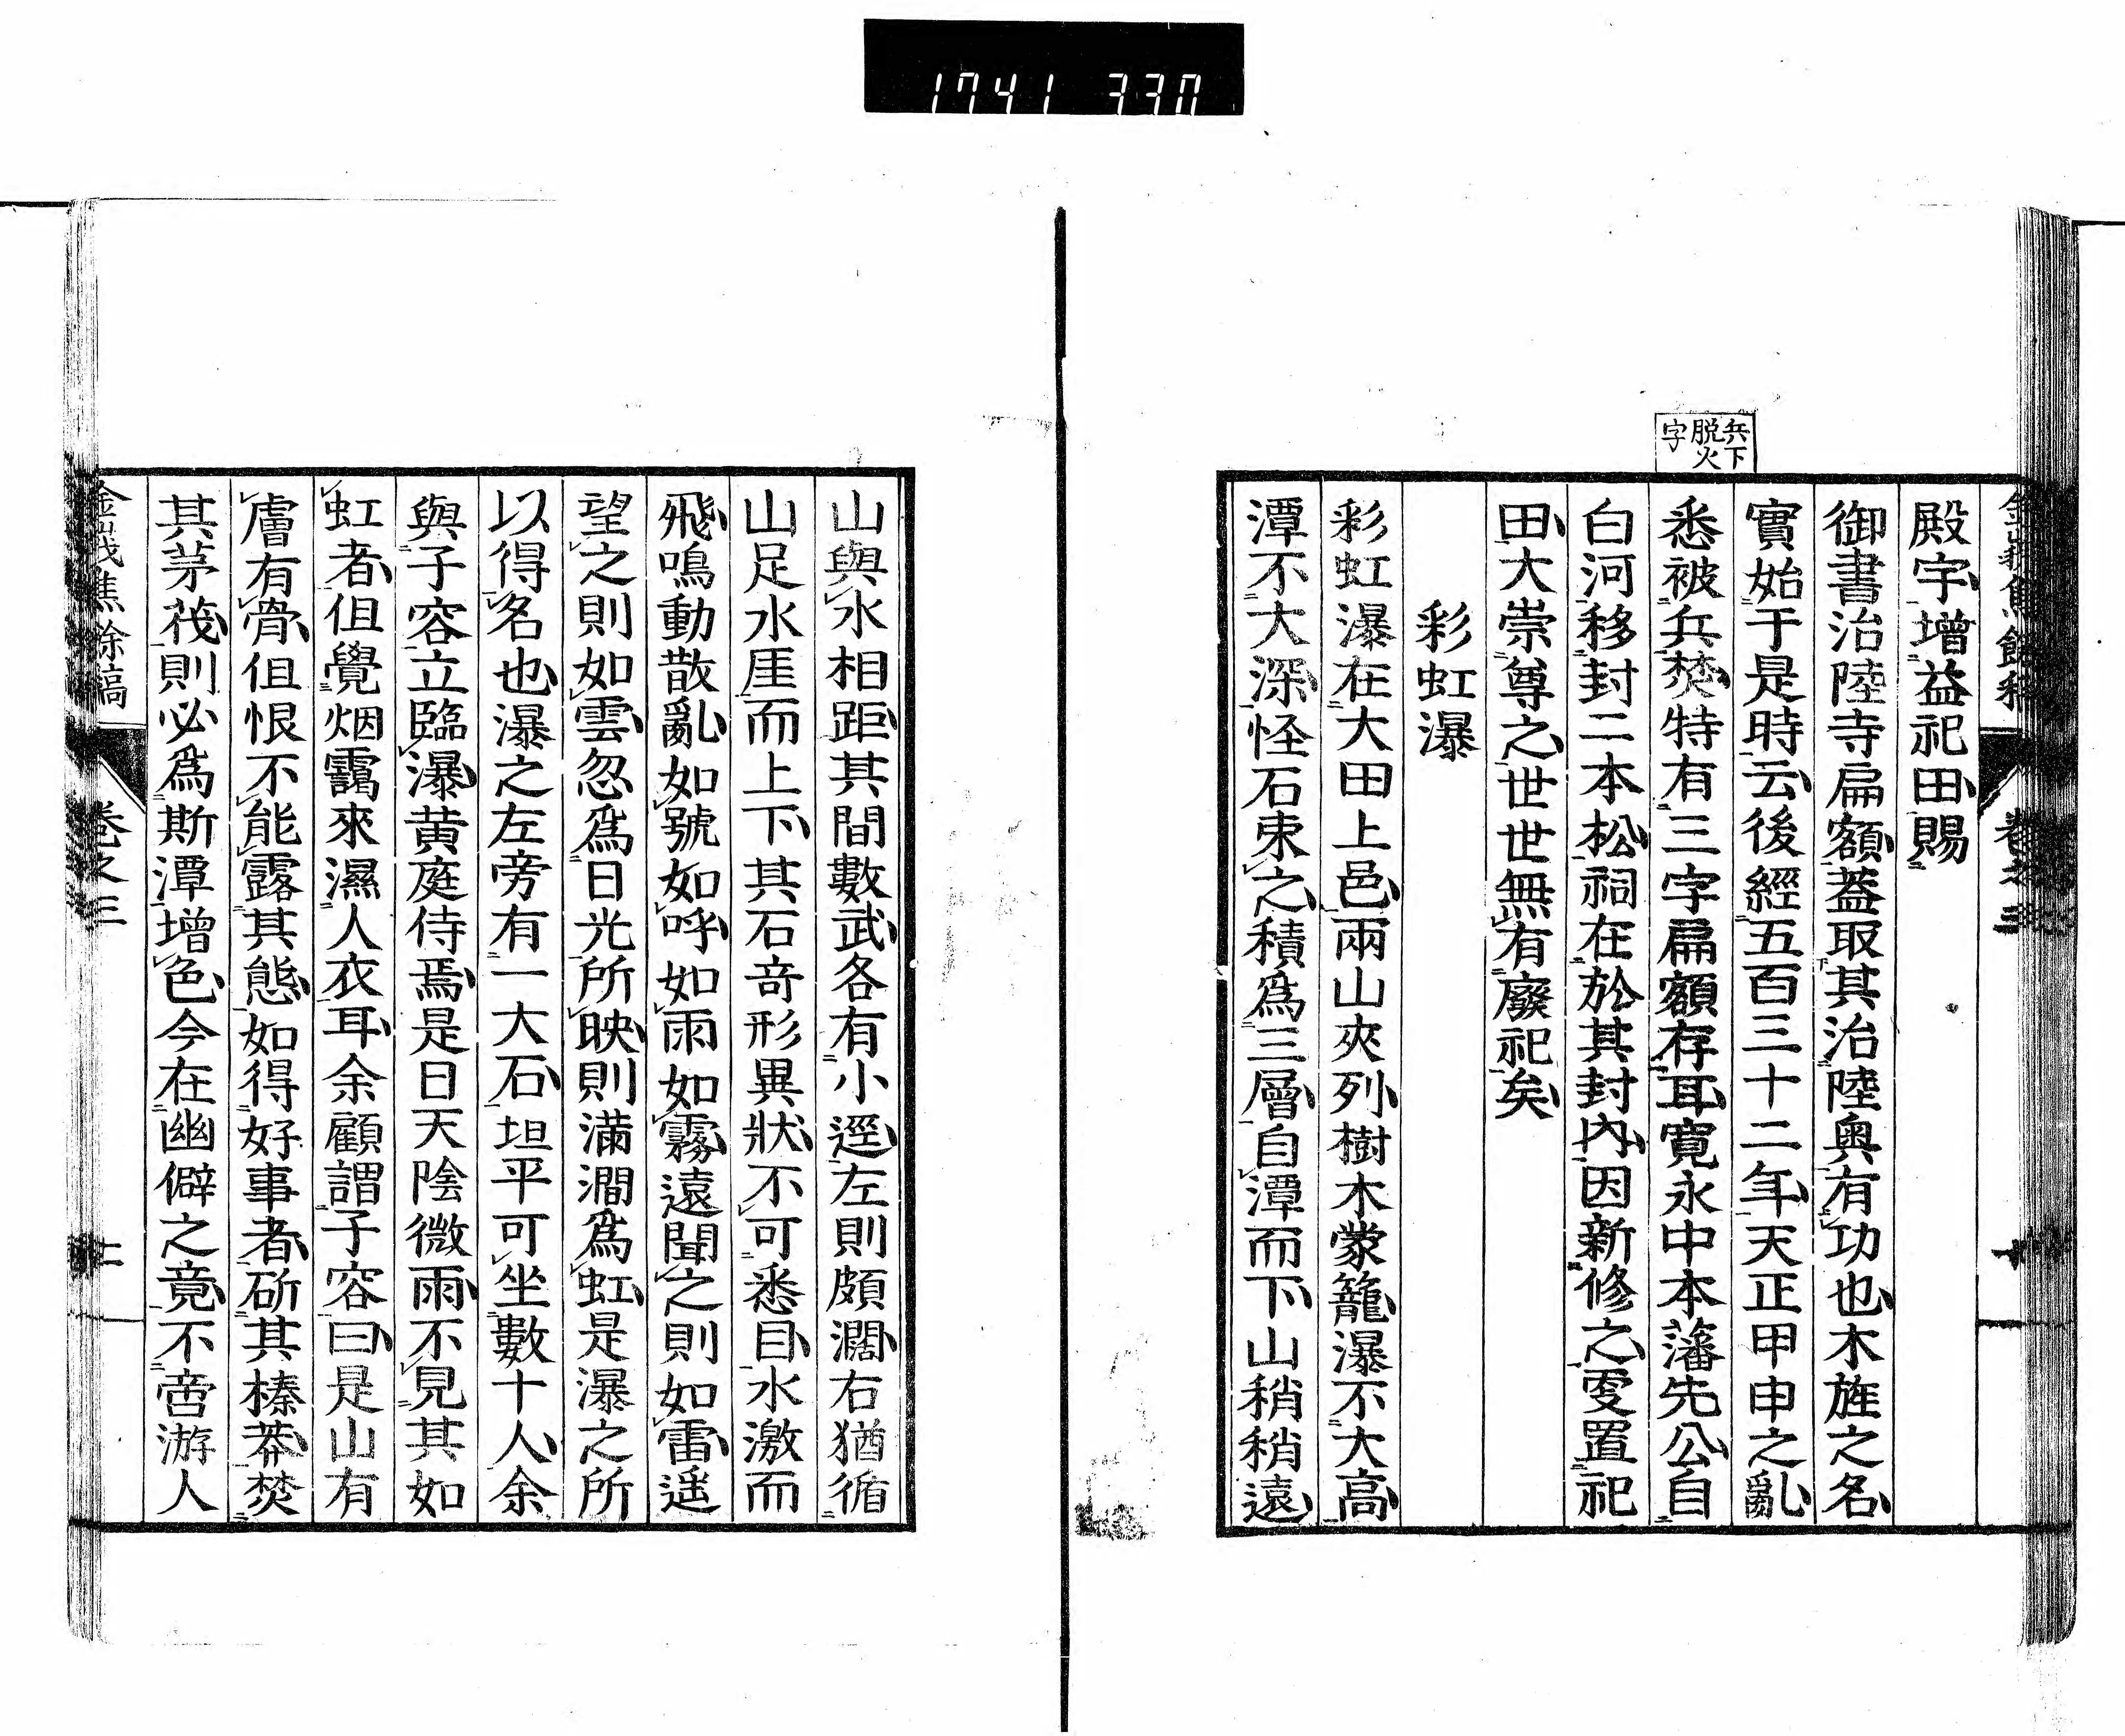 1741 330
兵下
脱火
字
殿宇增益祀田賜
御書治陸寺扁額蓋取其治陸奧有功也木旌之名
實始于是時云後經五百三十二年天正甲申之亂
悉被兵焚特有三字扁額存耳寬永中本藩先公自
白河移封二本松祠在於其封內因新修之更置祀
田大崇尊之世世無有廢祀矣
彩虹瀑
彩虹瀑在大田上邑兩山夾列樹木蒙籠瀑不大高
潭不大深怪石束之積為三層自潭而下山稍稍遠
山與水相距其間數武各有小逕左則頗濶右猶循
山足水厓而上下其石竒形異狀不可悉目水激而
飛鳴動散亂如號如呼如雨如霧遠聞之則如雷遥
望之則如雲忽為日光所映則滿澗為虹是瀑之所
以得名也瀑之左旁有一大石坦平可坐數十人余
與子容立臨瀑黄庭侍焉是日天陰微雨不見其如
虹者但覺烟靄來濕人衣耳余顧謂子容曰是山有
膚有骨但恨不能露其態如得好事者斫其榛莽焚
其茅茷則必為斯潭增色今在幽僻之竟不啻游人
卷之三